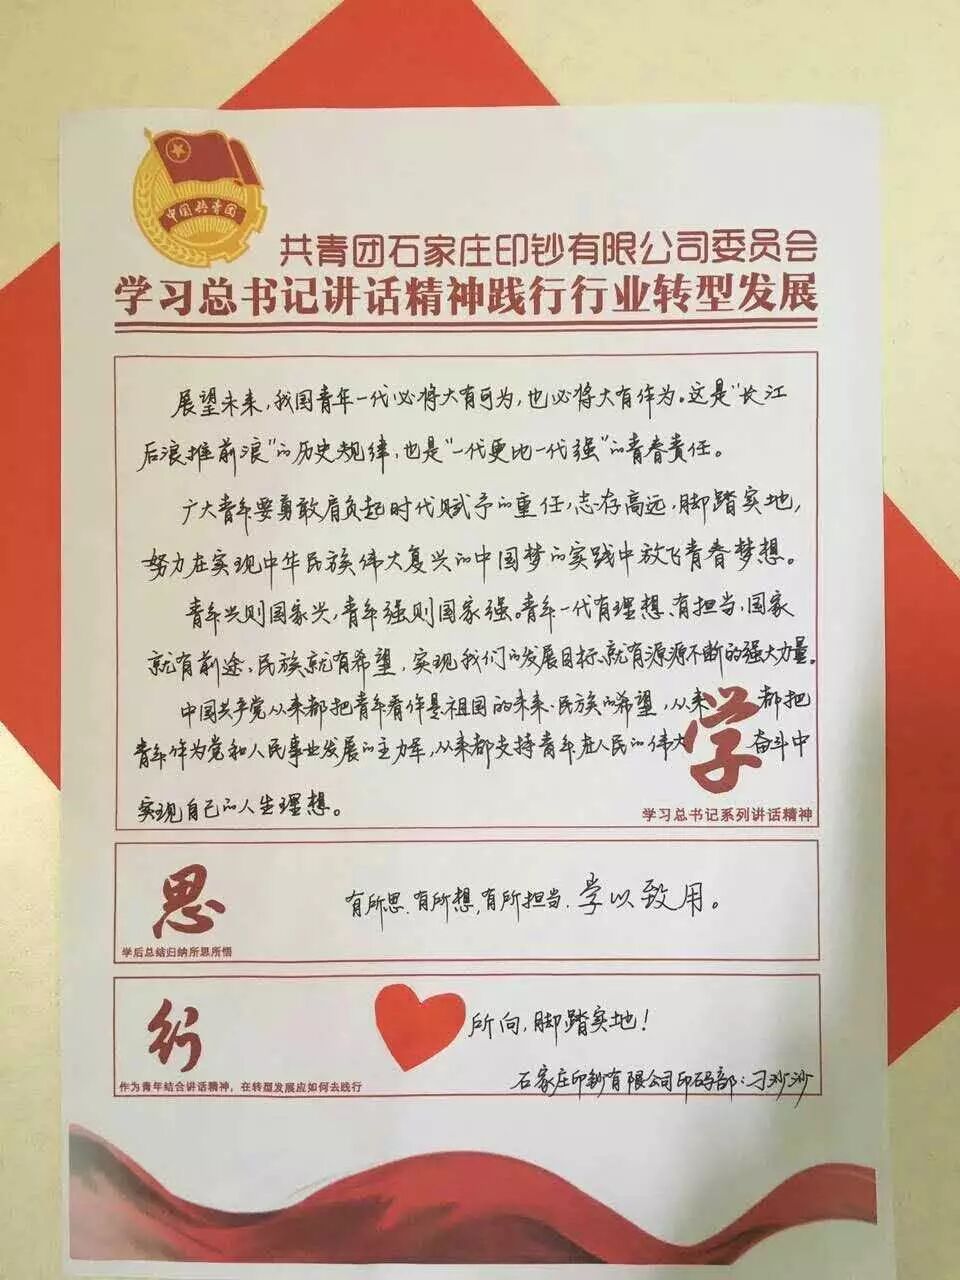 中国共青团
共青团石家庄印钞有限公司委员会
学习总书记讲话精神践行行业转型发展
展望未来，我国青年一代必将大有可为，也必将大有作为。这是“长江
后浪推前浪”的历史规律，也是“一代更比一代强”的青春责任。
广大青年要勇敢肩负起时代赋予的重任，志存高远，脚踏实地，
努力在实现中华民族伟大复兴的中国梦的实践中放飞青春梦想。
青年兴则国家兴，青年强则国家强。青年一代有理想、有担当，国家
就有前途，民族就有希望，实现我们的发展目标就有源源不断的强大力量。
中国共产党从来都把青年看作是祖国的未来、民族的希望，从来都把
青年作为党和人民事业发展的主力军，从来都支持青年在人民的伟大奋斗中
实现自己的人生理想。
学
学习总书记系列讲话精神
思
学后总结归纳所思所悟
有所思、有所想，有所担当、学以致用。
行
作为青年结合讲话精神，在转型发展应如何去践行
所向，脚踏实地！
石家庄印钞有限公司印码部：刁沙沙